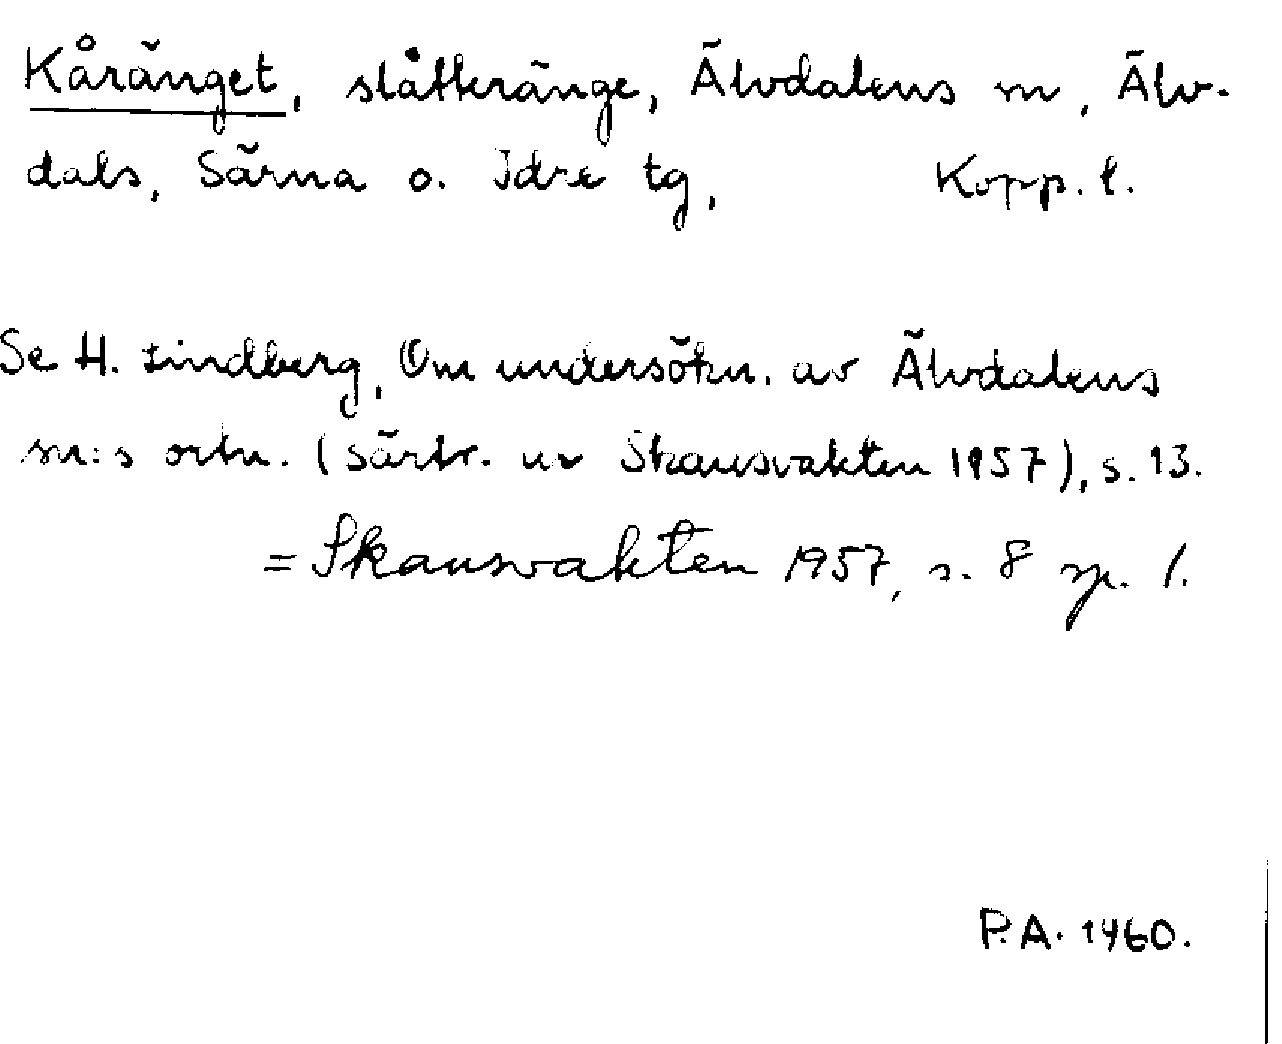 Kåränget, slåtteränge, Älvdalens sn, Älv-
dals, Särna o. Idre tg, Kopp. l.
Se H. Lindberg, Om undersökn. av Älvdalens
sn:s ortn. (Särtr. ur Skansvakten 1957), s. 13.
= Skansvakten 1957, s. 8 sp. 1.
P.A. 1960.